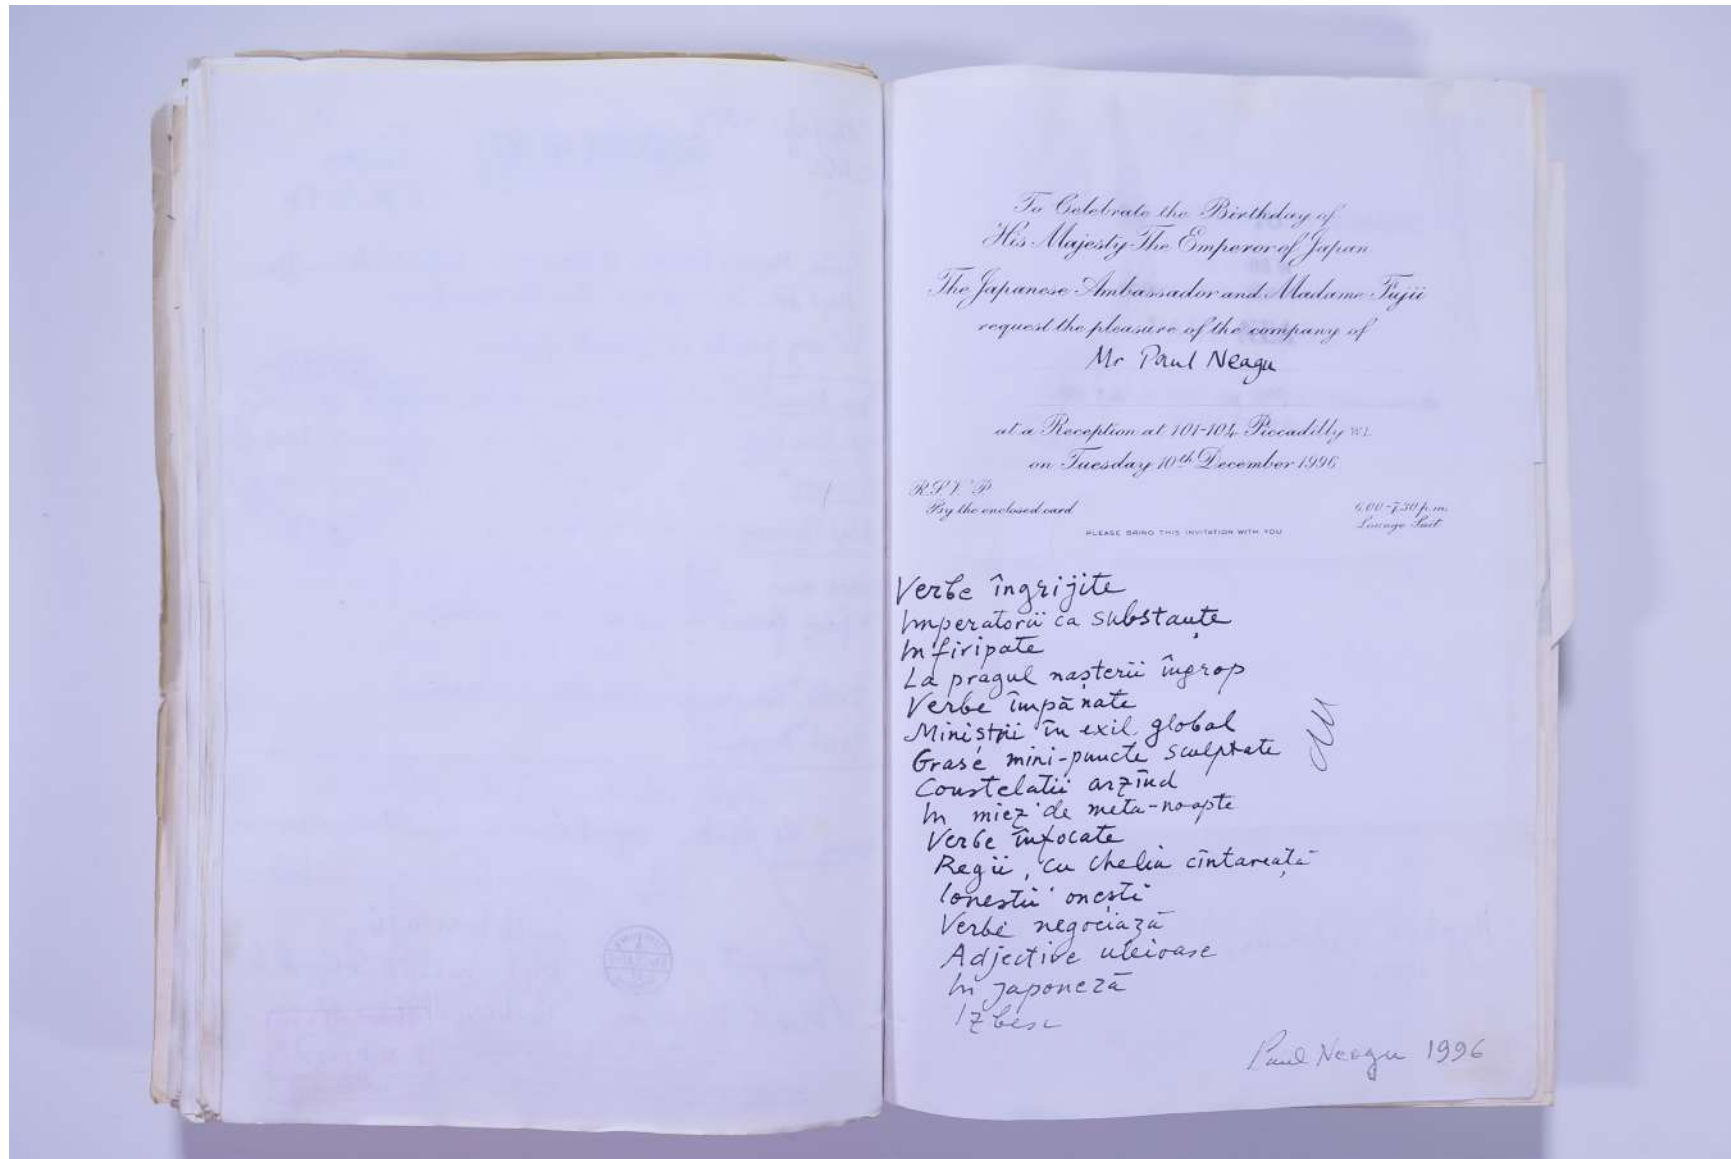 To Celebrate the Birthday of
His Majesty The Emperor of Japan
The Japanese Ambassador and Madame Fujii
request the pleasure of the company of
Mr Paul Neagu
at a Reception at 101-104 Piccadilly W1.
on Tuesday 10th December 1996
R.S.V.P
By the enclosed card
6.00-7.30 p.m.
Lounge Suit
PLEASE BRING THIS INVITATION WITH YOU
Verbe îngrijite
Imperatorii ca substanțe
Înfiripate
La pragul nașterii îngrop
Verbe împănate
Miniștrii în exil global
Grase mini-puncte sculptate
Constelatii arzînd
În miez de meta-noapte
Verbe înfocate
Regii, cu chelia cîntareață
Ioneștii onești
Verbe negociază
Adjective uleioase
În japoneză
Izbesc
Paul Neagu 1996